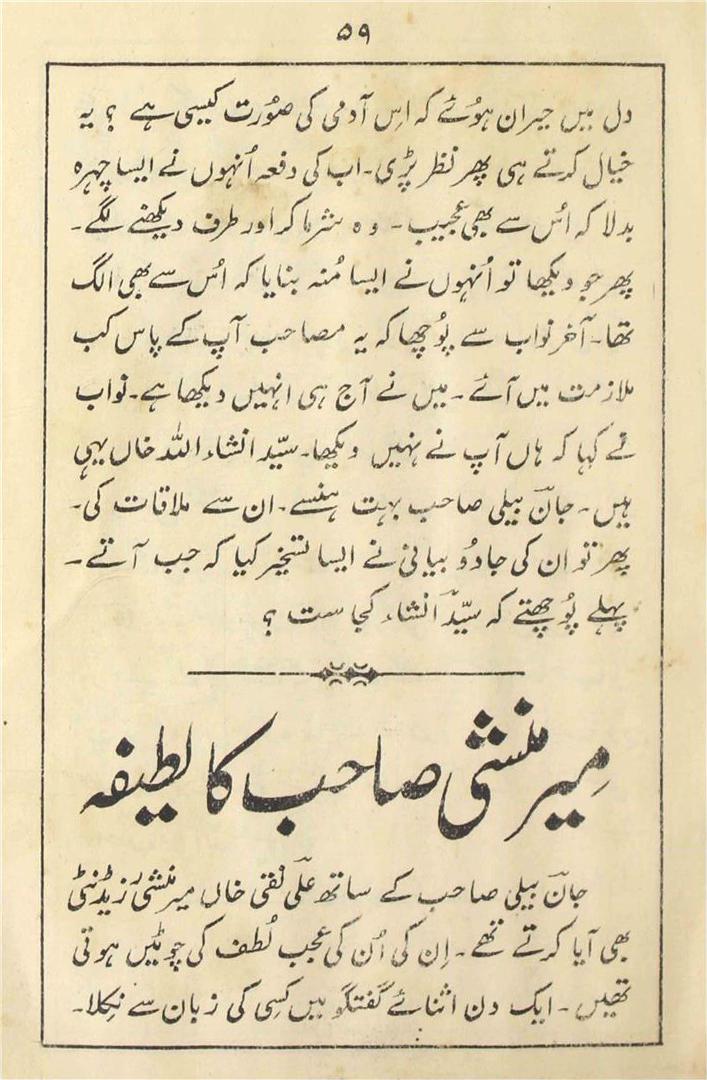 ۵۹
دل میں حیران ہوئے کہ اِس آدمی کی صُورت کیسی ہے ؟ یہ
خیال کرتے ہی پھر نظر پڑی۔ اب کی دفعہ اُنہوں نے ایسا چہرہ
بدلا کہ اُس سے بھی عجیب۔ وہ شرما کر اور طرف دیکھنے لگے۔
پھر جو دیکھا تو اُنہوں نے ایسا مُنہ بنایا کہ اُس سے بھی الگ
تھا۔ آخر نواب سے پُوچھا کہ یہ مصاحب آپ کے پاس کب
ملازمت میں آئے۔ میں نے آج ہی انہیں دیکھا ہے۔ نواب
نے کہا کہ ہاں آپ نے نہیں دیکھا۔ سیّد انشاء اللہ خاں یہی
ہیں۔ جان بیلی صاحب بہت ہنسے۔ ان سے ملاقات کی۔
پھر تو ان کی جادُو بیانی نے ایسا تسخیر کیا کہ جب آتے۔
پہلے پُوچھتے کہ سیّد انشاء کجا ست ؟
مِیر منشی صاحب کا لطیفہ
جان بیلی صاحب کے ساتھ علی نقی خاں میر منشی رزیڈنٹی
بھی آیا کرتے تھے۔ اِن کی اُن کی عجب لُطف کی چوٹیں ہوتی
تھیں۔ ایک دن اثنائے گفتگو میں کِسی کی زبان سے نِکلا۔